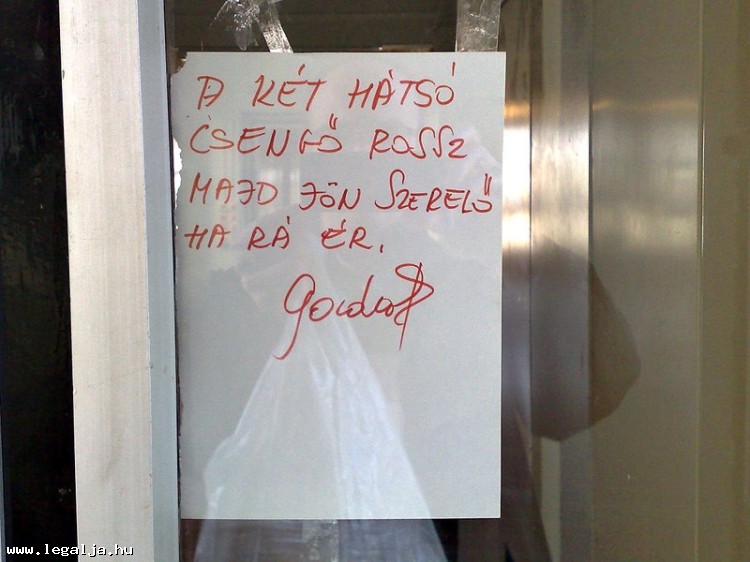 A KÉT HÁTSÓ
CSENGŐ ROSSZ
MAJD JÖN SZERELŐ
HA RÁ ÉR.
www.legalja.hu